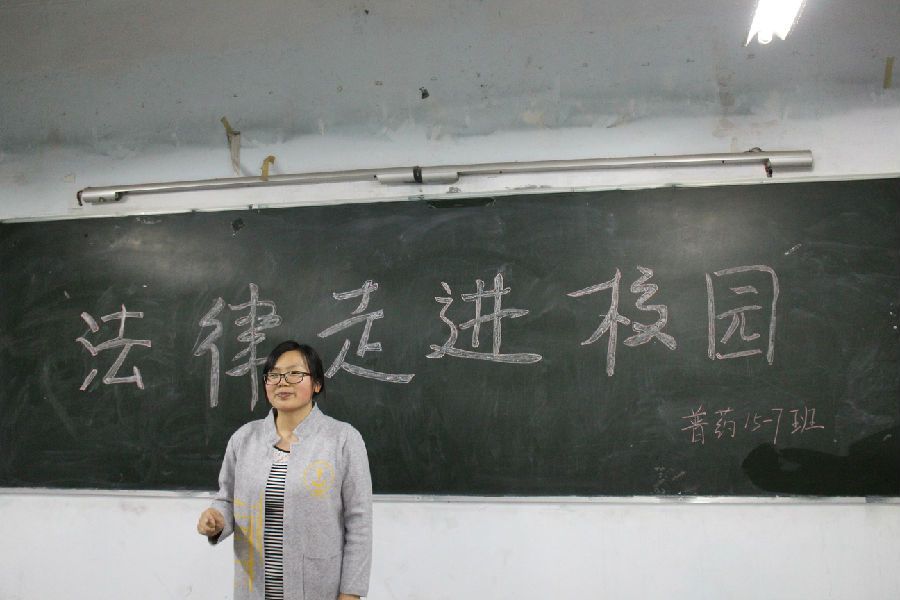 法律走进校园
普药15-7班